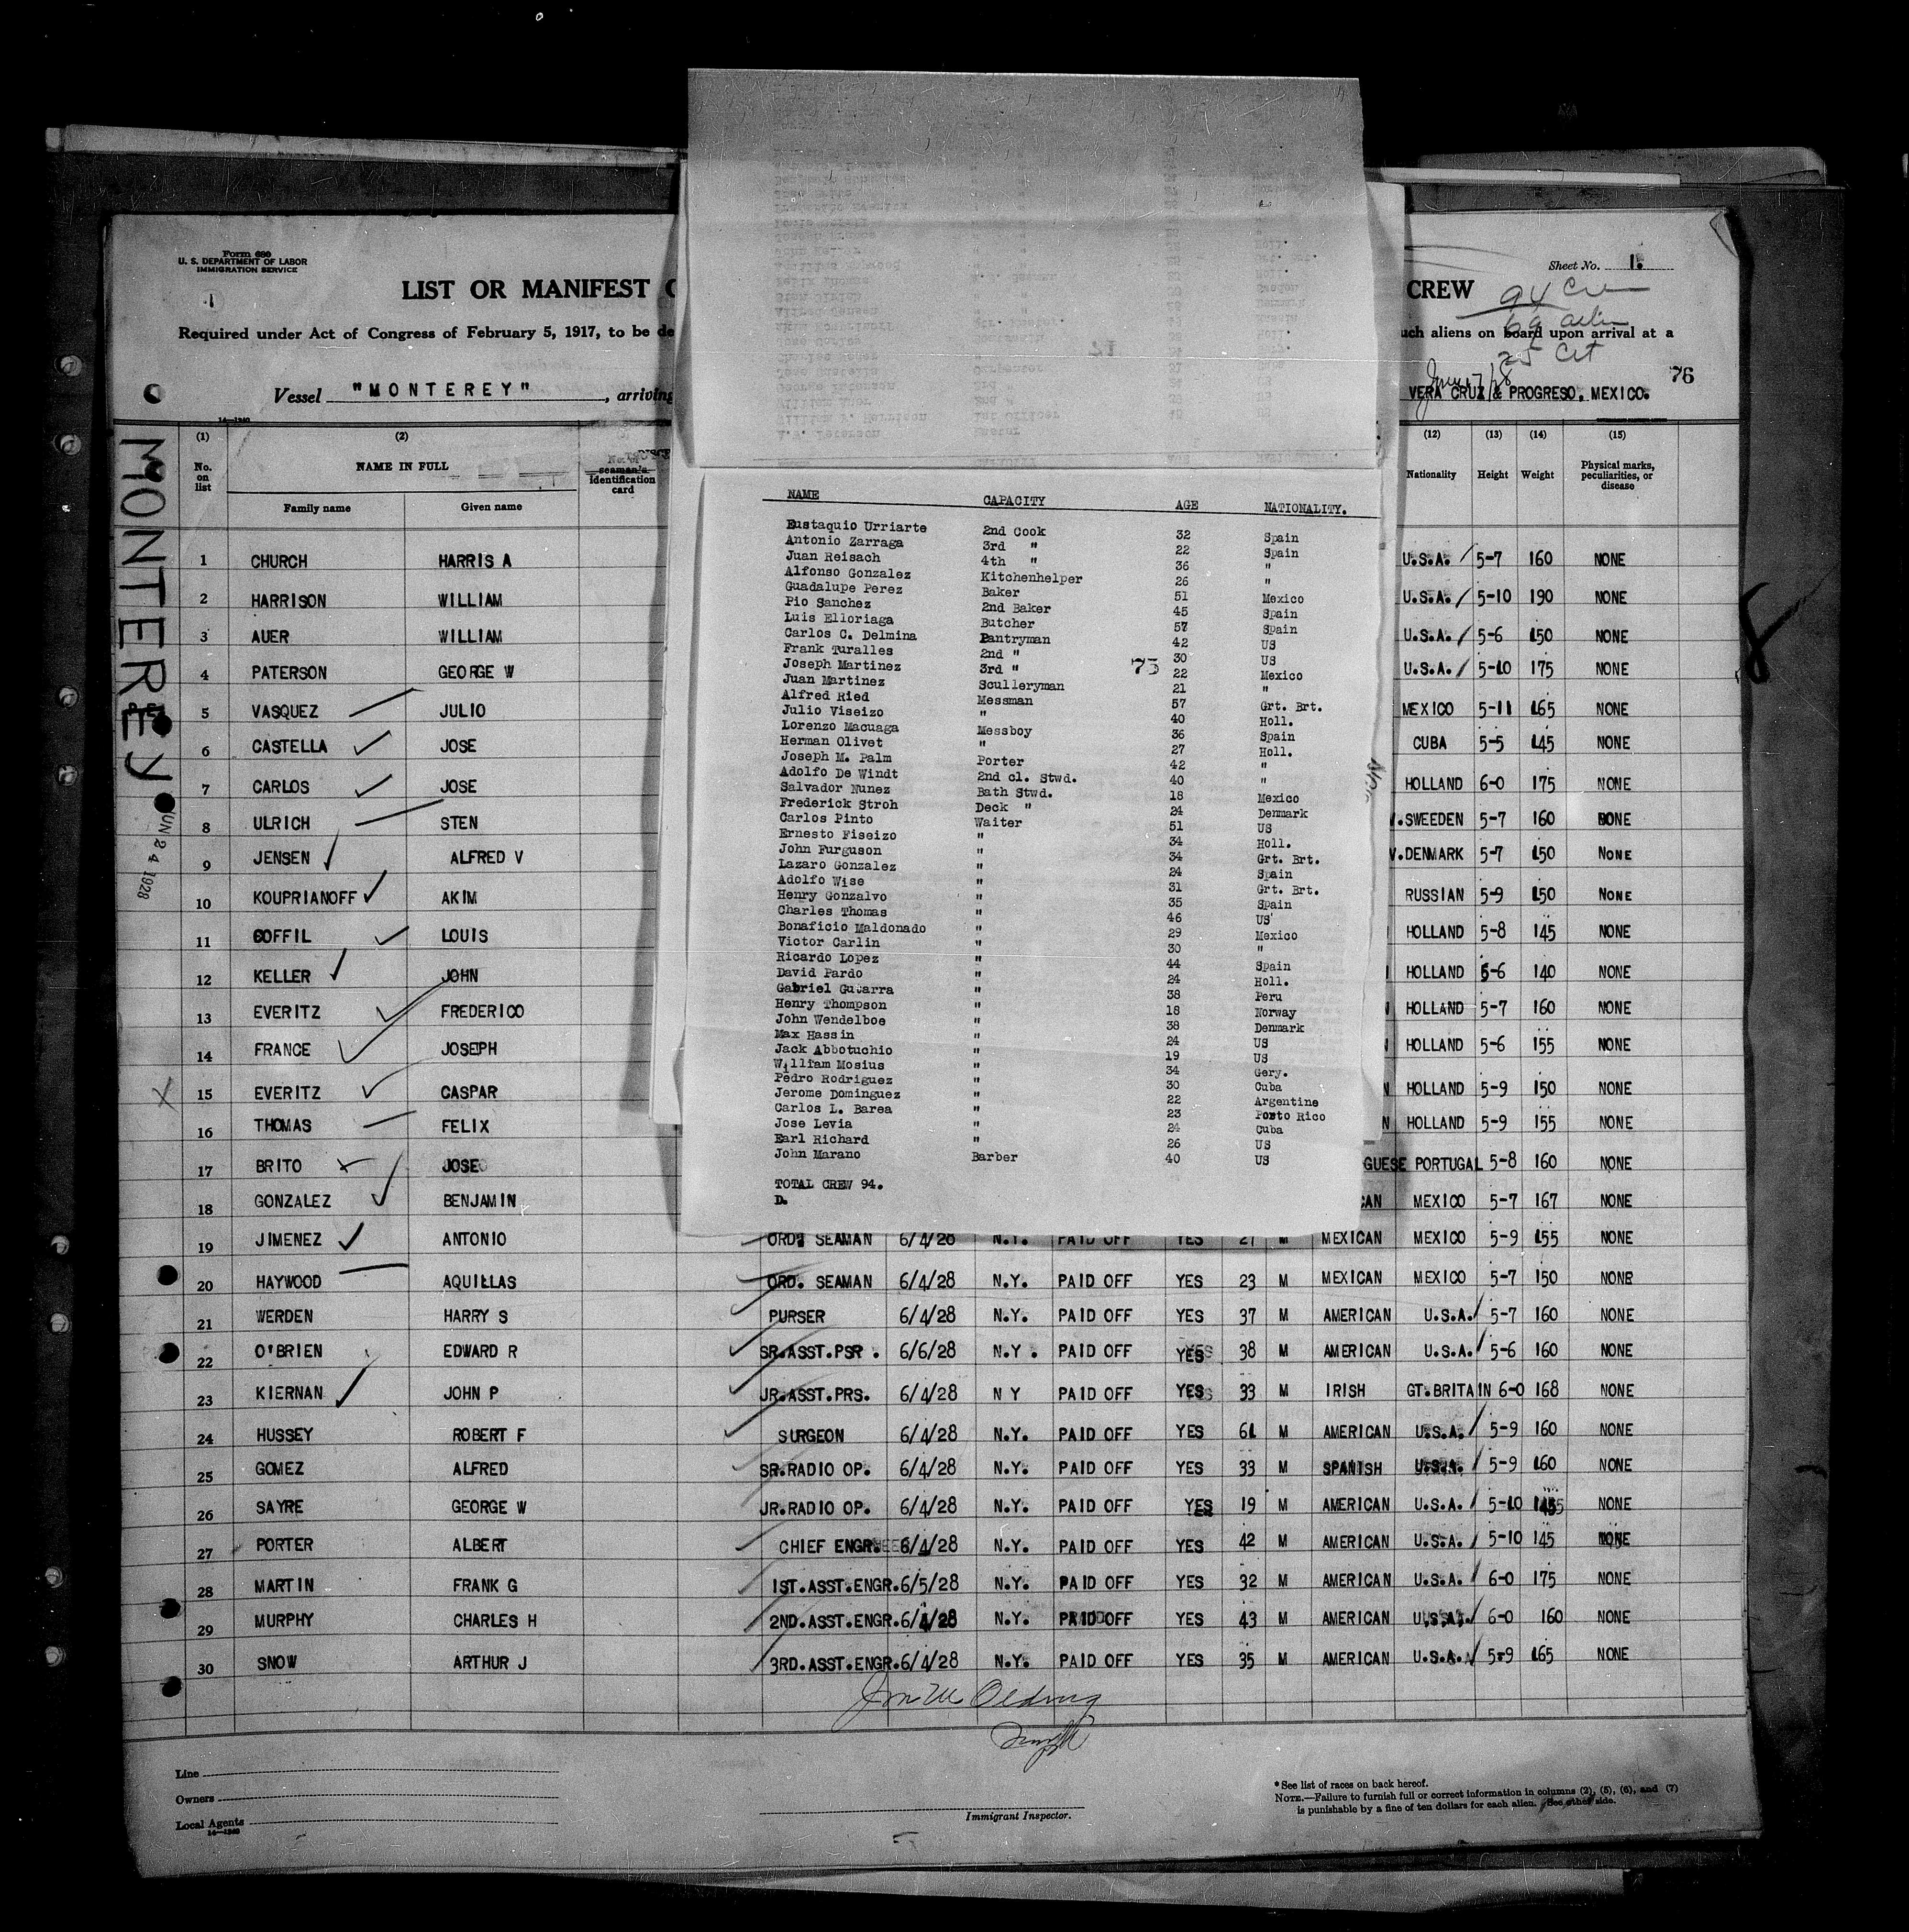 Form 680
U. S. DEPARTMENT OF LABOR
IMMIGRATION SERVICE
Sheet No. 1.
LIST OR MANIFEST
CREW
94 Crew
69 alien
25 Cit
Required under Act of Congress of February 5, 1917, to be de
uch aliens on board upon arrival at a
76
Vessel "MONTEREY", arriving
VERA CRUZ & PROGRESO, MEXICO.
MONTEREY
JUN 24 1928
(1) (2) (12) (13) (14) (15)
No. on list NAME IN FULL No. of seaman's identification card Nationality Height Weight Physical marks, peculiarities, or disease
Family name Given name
1 CHURCH HARRIS A U.S.A. 5-7 160 NONE
2 HARRISON WILLIAM U.S.A. 5-10 190 NONE
3 AUER WILLIAM U.S.A. 5-6 150 NONE
4 PATERSON GEORGE W U.S.A. 5-10 175 NONE
5 VASQUEZ JULIO MEXICO 5-11 165 NONE
6 CASTELLA JOSE CUBA 5-5 145 NONE
7 CARLOS JOSE HOLLAND 6-0 175 NONE
8 ULRICH STEN SWEEDEN 5-7 160 NONE
9 JENSEN ALFRED V DENMARK 5-7 150 NONE
10 KOUPRIANOFF AKIM RUSSIAN 5-9 150 NONE
11 COFFIL LOUIS HOLLAND 5-8 145 NONE
12 KELLER JOHN HOLLAND 5-6 140 NONE
13 EVERITZ FREDERICO HOLLAND 5-7 160 NONE
14 FRANCE JOSEPH HOLLAND 5-6 155 NONE
15 EVERITZ CASPAR HOLLAND 5-9 150 NONE
16 THOMAS FELIX HOLLAND 5-9 155 NONE
17 BRITO JOSE GUESE PORTUGAL 5-8 160 NONE
18 GONZALEZ BENJAMIN CAN MEXICO 5-7 167 NONE
19 JIMENEZ ANTONIO ORD. SEAMAN 6/4/28 N.Y. PAID OFF YES 27 M MEXICAN MEXICO 5-9 155 NONE
20 HAYWOOD AQUILLAS ORD. SEAMAN 6/4/28 N.Y. PAID OFF YES 23 M MEXICAN MEXICO 5-7 150 NONR
21 WERDEN HARRY S PURSER 6/4/28 N.Y. PAID OFF YES 37 M AMERICAN U.S.A. 5-7 160 NONE
22 O'BRIEN EDWARD R SR.ASST.PSR. 6/6/28 N.Y. PAID OFF YES 38 M AMERICAN U.S.A. 5-6 160 NONE
23 KIERNAN JOHN P JR.ASST.PRS. 6/4/28 N Y PAID OFF YES 33 M IRISH GT.BRITAIN 6-0 168 NONE
24 HUSSEY ROBERT F SURGEON 6/4/28 N.Y. PAID OFF YES 61 M AMERICAN U.S.A. 5-9 160 NONE
25 GOMEZ ALFRED SR.RADIO OP. 6/4/28 N.Y. PAID OFF YES 33 M SPANISH U.S.A. 5-9 160 NONE
26 SAYRE GEORGE W JR.RADIO OP. 6/4/28 N.Y. PAID OFF YES 19 M AMERICAN U.S.A. 5-10 NONE
27 PORTER ALBERT CHIEF ENGR. 6/4/28 N.Y. PAID OFF YES 42 M AMERICAN U.S.A. 5-10 145 NONE
28 MARTIN FRANK G 1ST.ASST.ENGR. 6/5/28 N.Y. PAID OFF YES 32 M AMERICAN U.S.A. 6-0 175 NONE
29 MURPHY CHARLES H 2ND.ASST.ENGR. 6/4/28 N.Y. PAID OFF YES 43 M AMERICAN U.S.A. 6-0 160 NONE
30 SNOW ARTHUR J 3RD.ASST.ENGR. 6/4/28 N.Y. PAID OFF YES 35 M AMERICAN U.S.A. 5-9 165 NONE
NAME CAPACITY AGE NATIONALITY.
Eustaquio Urriarte 2nd Cook 32 Spain
Antonio Zarraga 3rd " 22 Spain
Juan Reisach 4th " 36 "
Alfonso Gonzalez Kitchenhelper 26 "
Guadalupe Perez Baker 51 Mexico
Pio Sanchez 2nd Baker 45 Spain
Luis Elloriaga Butcher 57 Spain
Carlos C. Delmina Pantryman 42 US
Frank Turalles 2nd " 30 US
Joseph Martinez 3rd " 22 Mexico
73
Juan Martinez Sculleryman 21 "
Alfred Ried Messman 57 Grt. Brt.
Julio Viseizo " 40 Holl.
Lorenzo Macuaga Messboy 36 Spain
Herman Olivet " 27 Holl.
Joseph M. Palm Porter 42 "
Adolfo De Windt 2nd cl. Stwd. 40 "
Salvador Nunez Bath Stwd. 18 Mexico
Frederick Stroh Deck " 24 Denmark
Carlos Pinto Waiter 51 US
Ernesto Fiseizo " 34 Holl.
John Furguson " 34 Grt. Brt.
Lazaro Gonzalez " 24 Spain
Adolfo Wise " 31 Grt. Brt.
Henry Gonzalvo " 35 Spain
Charles Thomas " 46 US
Bonaficio Maldonado " 29 Mexico
Victor Carlin " 30 "
Ricardo Lopez " 44 Spain
David Pardo " 24 Holl.
Gabriel Gutarra " 38 Peru
Henry Thompson " 18 Norway
John Wendelboe " 38 Denmark
Max Hassin " 24 US
Jack Abbotuchio " 19 US
William Mosius " 34 Gery.
Pedro Rodriguez " 30 Cuba
Jerome Dominguez " 22 Argentine
Carlos L. Barea " 23 Porto Rico
Jose Levia " 24 Cuba
Earl Richard " 26 US
John Marano Barber 40 US
TOTAL CREW 94.
D.
Line
Owners
Local Agents
14—1240
Immigrant Inspector.
* See list of races on back hereof.
NOTE.—Failure to furnish full or correct information in columns (2), (5), (6), and (7)
is punishable by a fine of ten dollars for each alien. See other side.